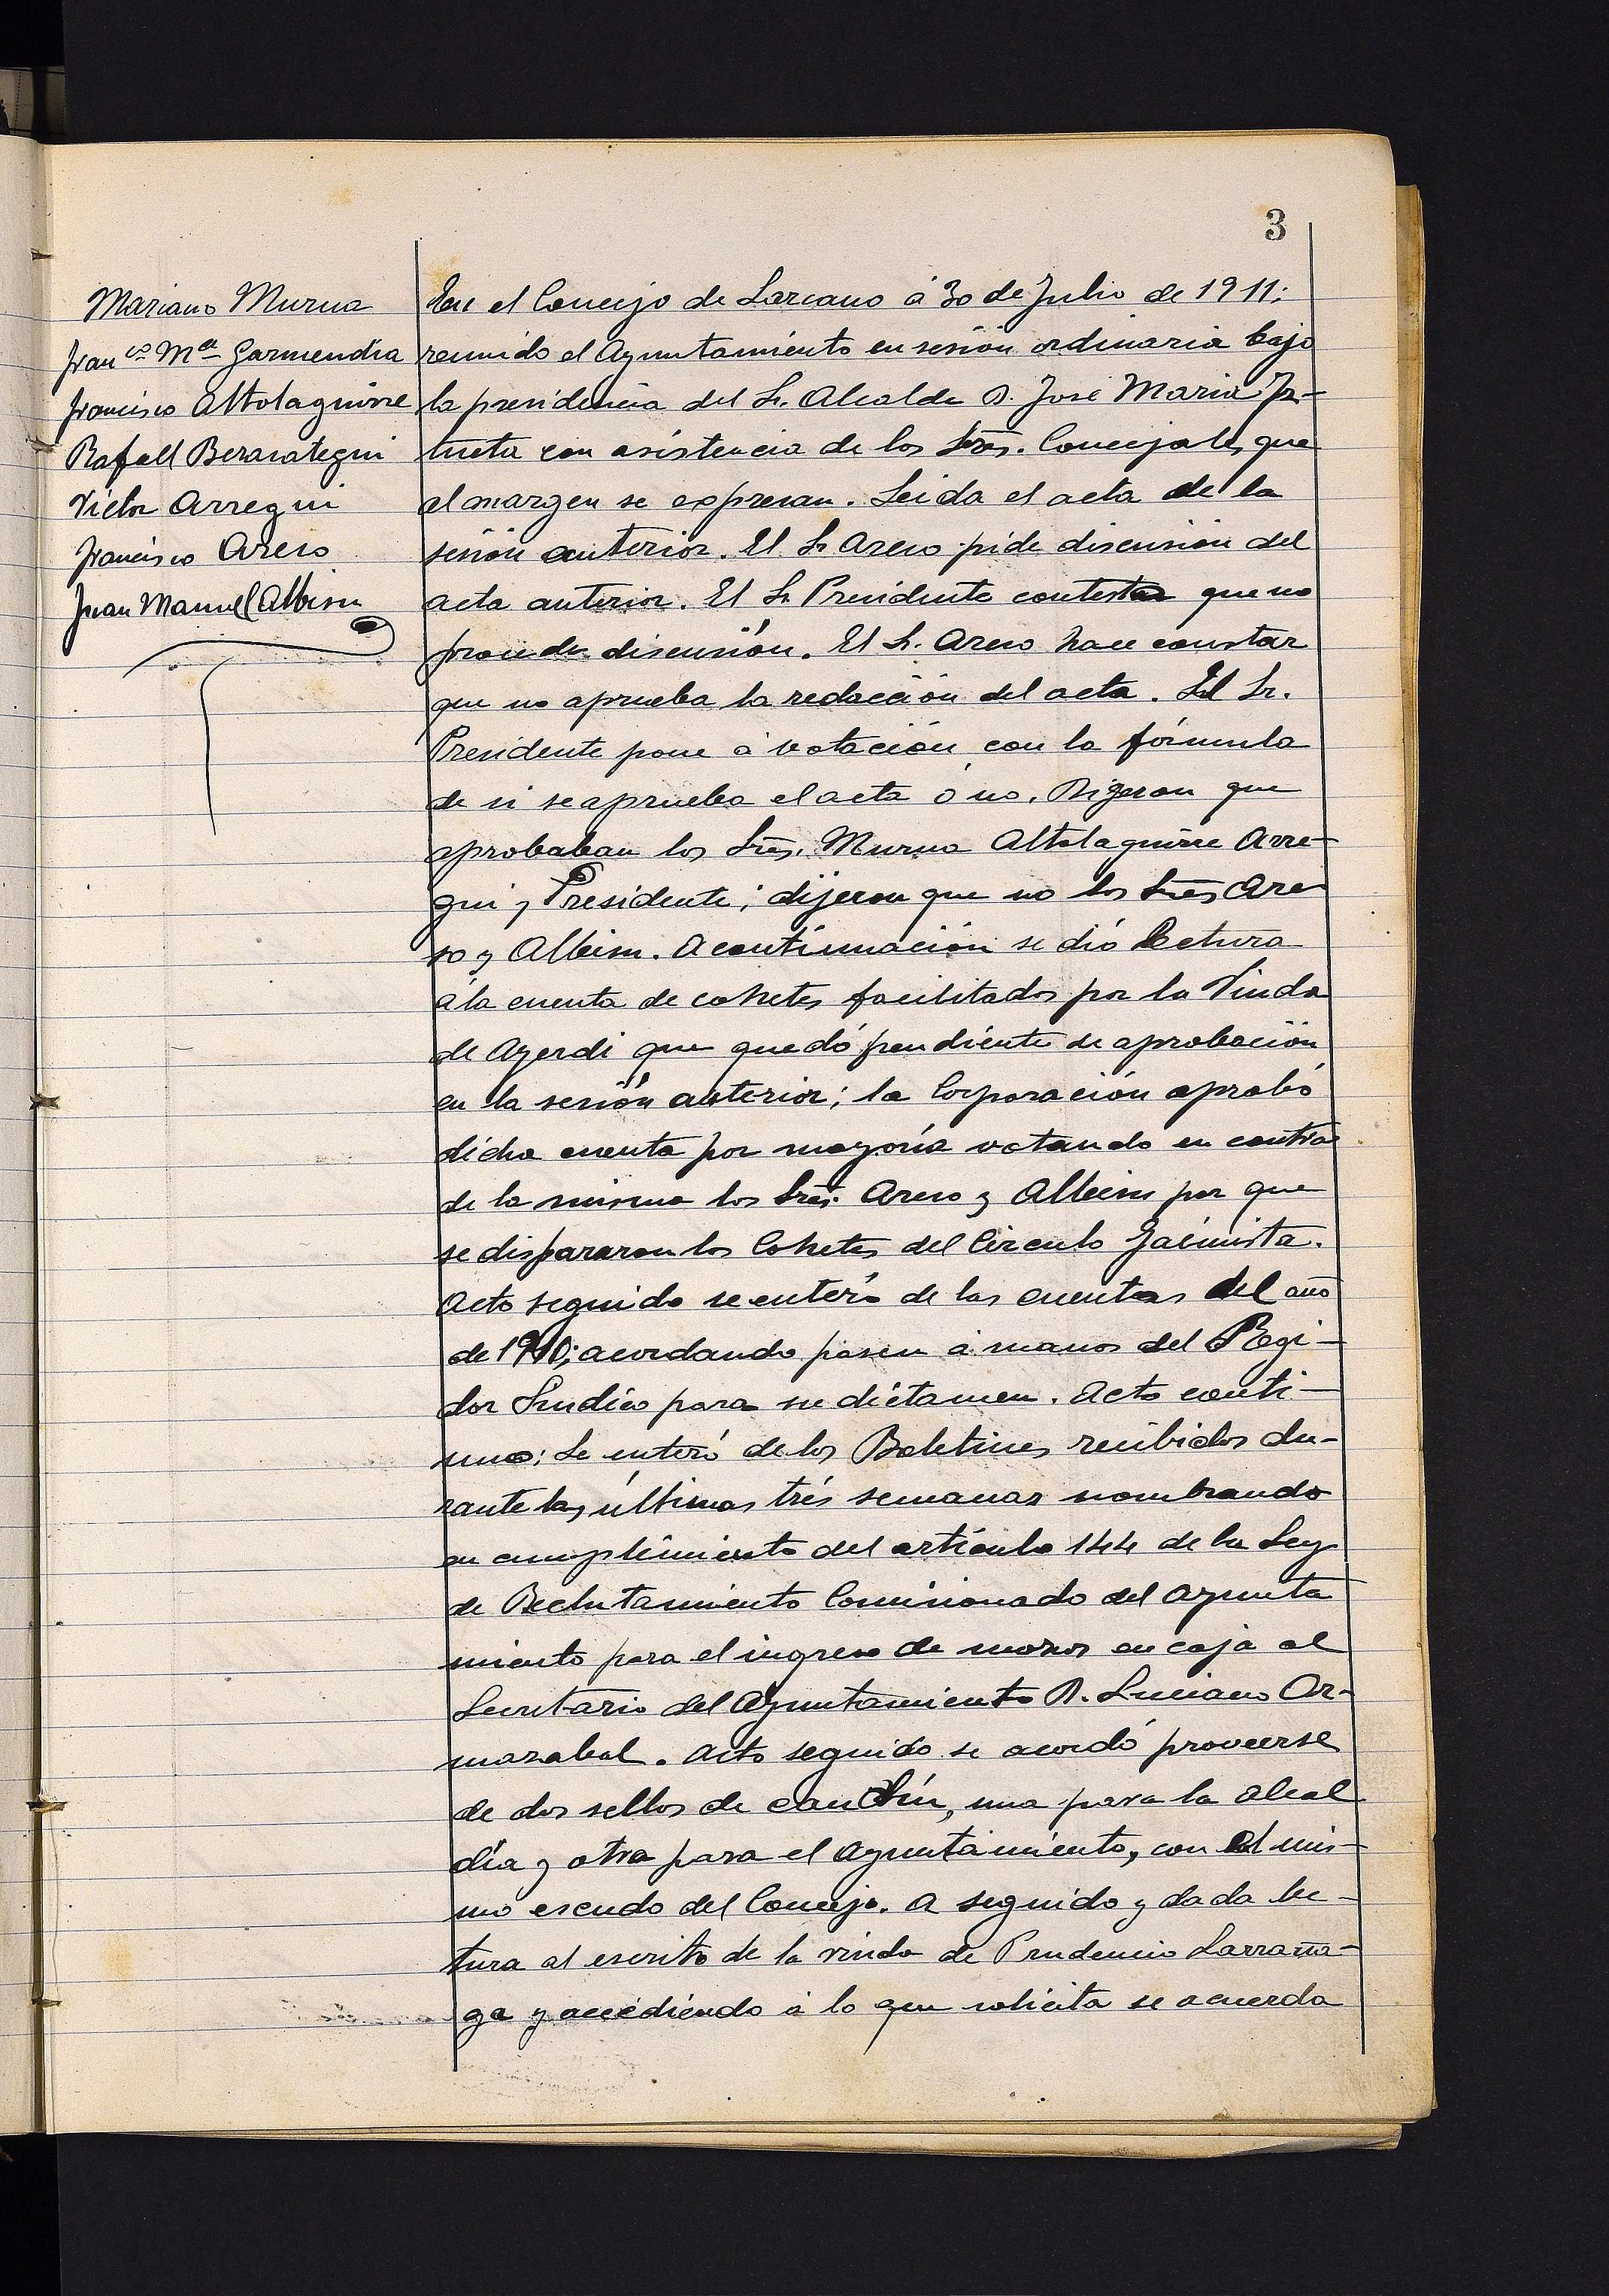 3
Mariano Murua
Franco Ma Garmendia
Francisco Altolaguirre
Rafael Berasategui
Victor Arregui
Francisco Areso
Juan Manuel Albisu
En el Concejo de Lazcano á 30 de Julio de 1911;
reunido el Ayuntamiento en sesión ordinaria bajo
la presidencia del Sr. Alcalde D. José Maria Ir-
tueta con asistencia de los Sres. Concejales que
al margen se expresan. Leida el acta de la
sesión anterior. El Sr Areso pide discusión del
acta anterior. El Sr Presidente contesta que no
procede discusión. El Sr. Areso hace constar
que no aprueba la redacción del acta. El Sr.
Presidente pone á votación con la fórmula
de si se aprueba el acta ó no. Digeron que
aprobaban los Sres. Murua Altolaguirre Arre-
gui y Presidente; dijeron que no los Sres Are
so y Albisu. A continuación se dió lectura
á la cuenta de cohetes facilitados por la Viuda
de Ayerdi que quedó pendiente de aprobación
en la sesión anterior; la Corporación aprobó
dicha cuenta por mayoría votando en contra
de la misma los Sres. Areso y Albisu por que
se dispararon los Cohetes del Circulo Jaimista.
Acto seguido se enteró de las cuentas del año
de 1910; acordando pasen á manos del Regi-
dor Sindico para su dictamen. Acto conti-
nuo: Se enteró de los Boletines recibidos du-
rante las últimas trés semanas nombrando
en cumplimiento del artículo 144 de la Ley
de Reclutamiento Comisionado del Ayunta
miento para el ingreso de mozos en caja al
Secretario del Ayuntamiento D. Luciano Or-
mazabal. Acto seguido se acordó proveerse
de dos sellos de cauchú, una para la Alcal
día y otra para el Ayuntamiento, con el mis-
mo escudo del Concejo. A seguido y dada lec-
tura al escrito de la viuda de Prudencio Larraña-
ga y accediendo á lo que solicita se acuerda